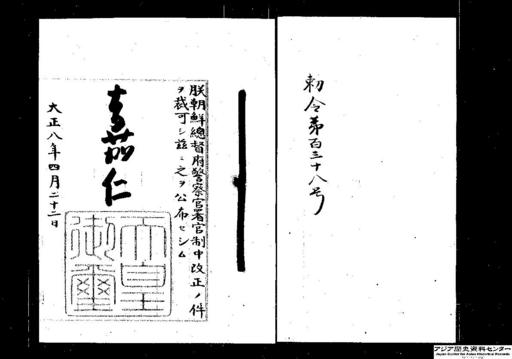 勅令第百三十八号
朕朝鮮總督府警察官署官制中改正ノ件
ヲ裁可シ茲ニ之ヲ公布セシム
嘉仁
天皇
御璽
大正八年四月二十二日
アジア歴史資料センター
Japan Center for Asian Historical Records